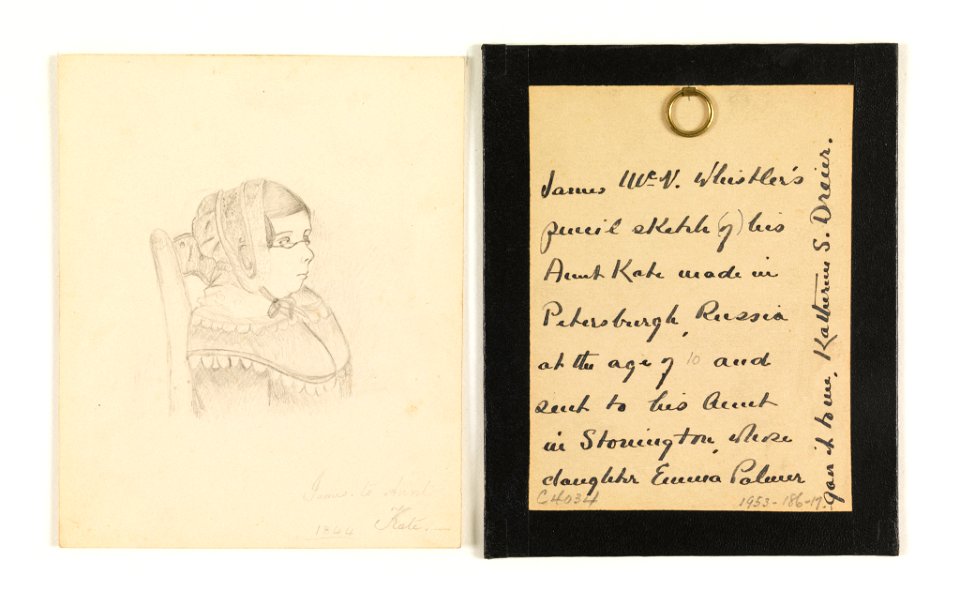 James to Aunt
Kate.—
1844
James McN. Whistler's
pencil sketch (of) his
Aunt Kate made in
Petersburgh, Russia
at the age of 10 and
sent to his Aunt
in Stonington, whose
daughter Emma Palmer
gave it to me, Katherine S. Dreier.
C4034
1953-186-17.